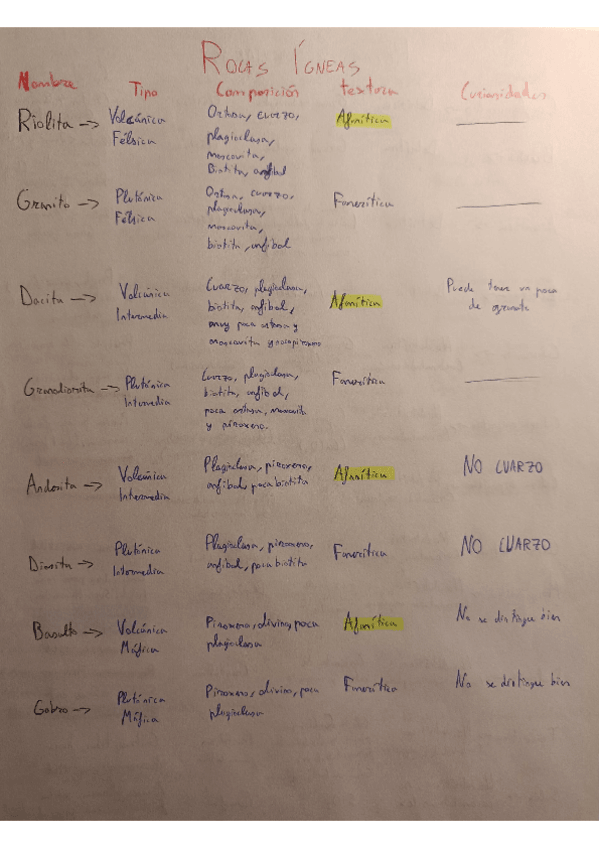 ROCAS ÍGNEAS
Nombre Tipo Composición textura Curiosidades
Riolita → Volcánica Ortosa, cuarzo, Afanítica
Félsica plagioclasa,
moscovita,
Biotita, anfibol
Granito → Plutónica Ortosa, cuarzo, Fanerítica
Félsica plagioclasa,
moscovita,
biotita, anfibol
Dacita → Volcánica Cuarzo, plagioclasa, Afanítica Puede tener un poco
Intermedia biotita, anfibol, de granate
muy poca ortosa y
moscovita y piroxeno
Granodiorita → Plutónica Cuarzo, plagioclasa, Fanerítica
Intermedia biotita, anfibol,
poca ortosa, moscovita
y piroxeno.
Andesita → Volcánica Plagioclasa, piroxeno, Afanítica NO CUARZO
Intermedia anfibol, poca biotita
Diorita → Plutónica Plagioclasa, piroxeno, Fanerítica NO CUARZO
Intermedia anfibol, poca biotita
Basalto → Volcánica Piroxeno, olivino, poca Afanítica No se distingue bien
Máfica plagioclasa
Gabro → Plutónica Piroxeno, olivino, poca Fanerítica No se distingue bien
Máfica plagioclasa